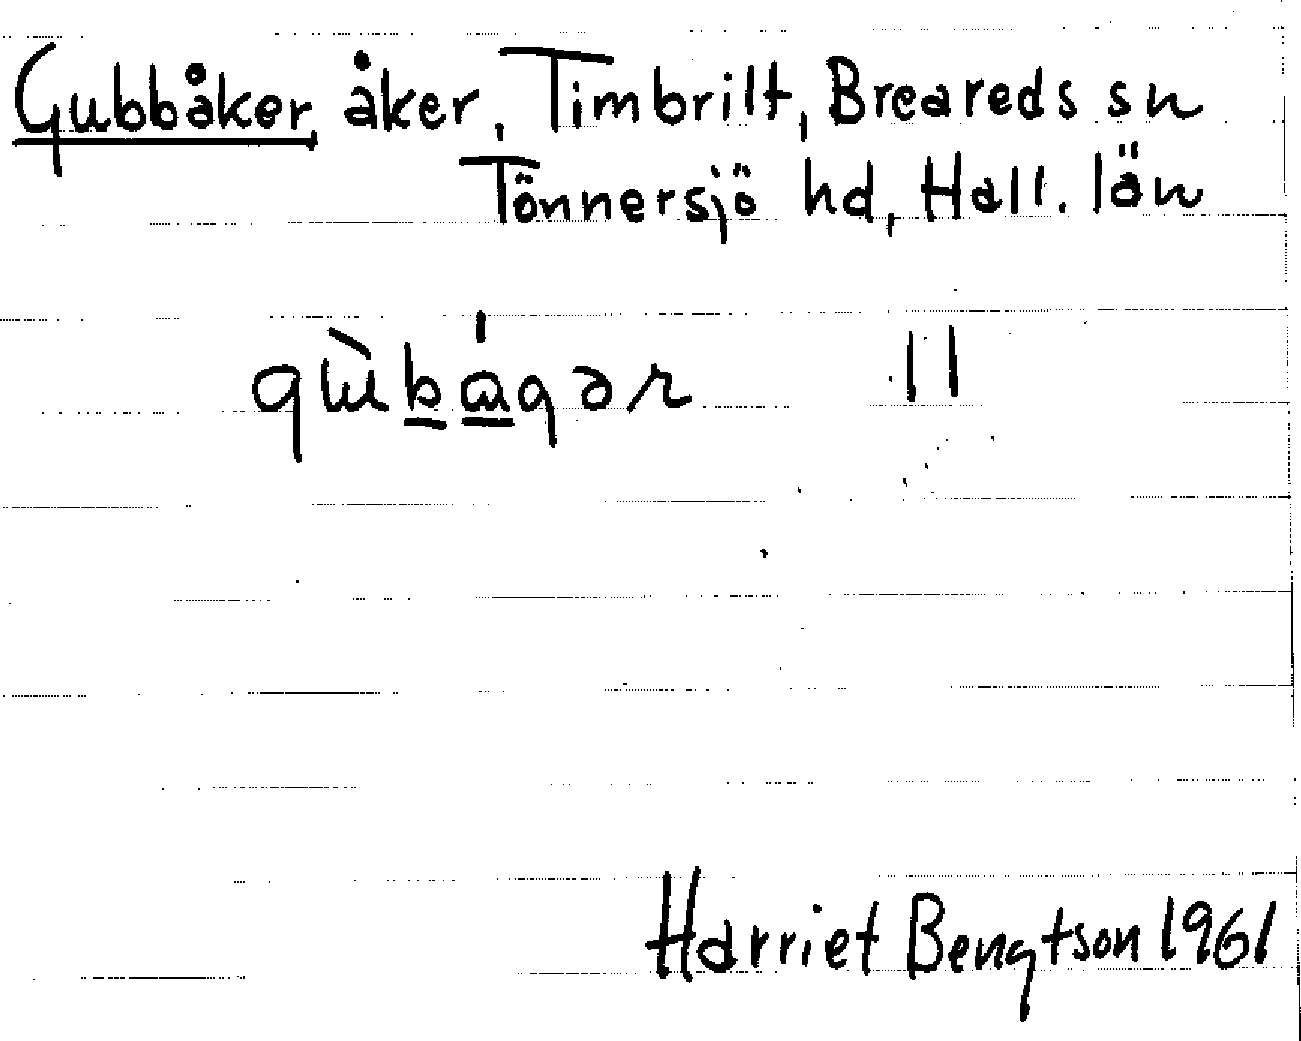 Gubbåker, åker, Timbrilt, Breareds sn
Tönnersjö hd, Hall. län
11
Harriet Bengtson 1961